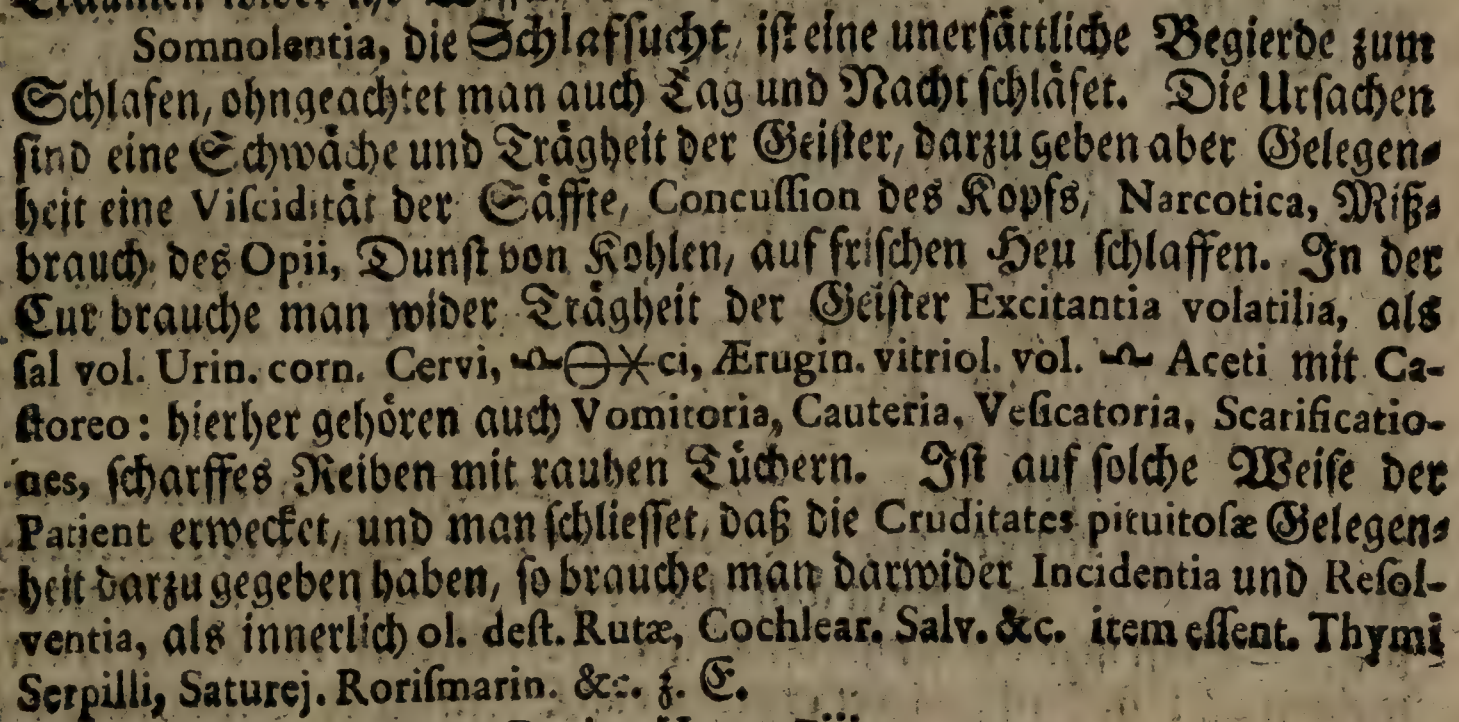 Somnolentia, die Schlafſucht, iſt eine unerſåttliche Begierde zum
Schlafen, ohngeachtet man auch Tag und Nacht ſchlåfet. Die Urſachen
ſind eine Schwåche und Trågheit der Geiſter, darzu geben aber Gelegen-
heit eine Viſciditåt der Såffte, Concuſſion des Kopfs, Narcotica, Miß-
brauch des Opii, Dunſt von Kohlen, auf friſchen Heu ſchlaffen. In der
Cur brauche man wider Trågheit der Geiſter Excitantia volatilia, als
ſal vol. Urin. corn. Cervi, 🜪🜔🜹ci, Ærugin. vitriol. vol. 🜪 Aceti mit Ca-
ſtoreo: hierher gehören auch Vomitoria, Cauteria, Veſicatoria, Scarificatio-
nes, ſcharffes Reiben mit rauhen Tüchern. Iſt auf ſolche Weiſe der
Patient erwecket, und man ſchlieſſet, daß die Cruditates pituitoſæ Gelegen-
heit darzu gegeben haben, ſo brauche man darwider Incidentia und Reſol-
ventia, als innerlich ol. deſt. Rutæ, Cochlear. Salv. &c. item eſſent. Thymi
Serpilli, Saturej. Roriſmarin. &c. z. E.